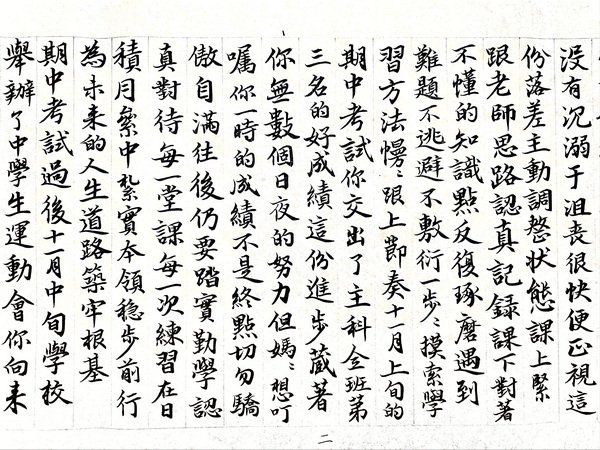 没有沉溺于沮喪很快便正視這
份落差主動調整状態課上緊
跟老師思路認真記録課下對著
不懂的知識點反復琢磨遇到
難題不逃避不敷衍一步〻摸索學
習方法慢〻跟上節奏十一月上旬的
期中考試你交出了主科全班第
三名的好成績這份進步蔵著
你無數個日夜的努力但媽〻想叮
嘱你一時的成績不是終點切勿驕
傲自滿往後仍要踏實勤學認
真對待每一堂課每一次練習在日
積月纍中紮實本領穩步前行
為未来的人生道路築牢根基
期中考試過後十一月中旬學校
舉辦了中學生運動會你向来
二